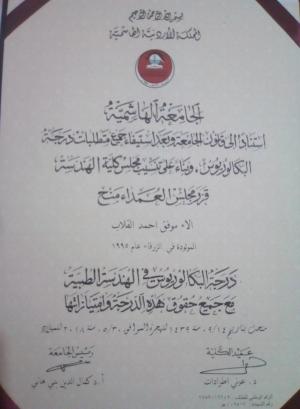 بسم الله الرحمن الرحيم
المملكة الأردنية الهاشمية
الجامعة الهاشمية
استناداً إلى قانون الجامعة وبعد استيفاء جميع متطلبات درجة
البكالوريوس، وبناء على تنسيب مجلس كلية الهندسة
قرر مجلس العمداء منح
الاء موفق احمد القلاب
المولودة في الزرقاء عام ١٩٩٥
درجة البكالوريوس في الهندسة الطبية
مع جميع حقوق هذه الدرجة وامتيازاتها
عميد الكلية
رئيس الجامعة
أ.د كمال الدين بني هاني